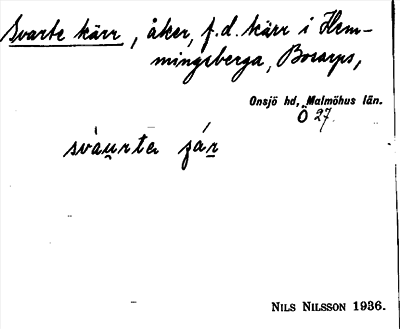 Svarte kärr, åker, f.d. kärr i Hem-
mingsberga, Bosarps,
Onsjö hd, Malmöhus län.
Ö 27.
svàu̱rte
NILS NILSSON 1936.